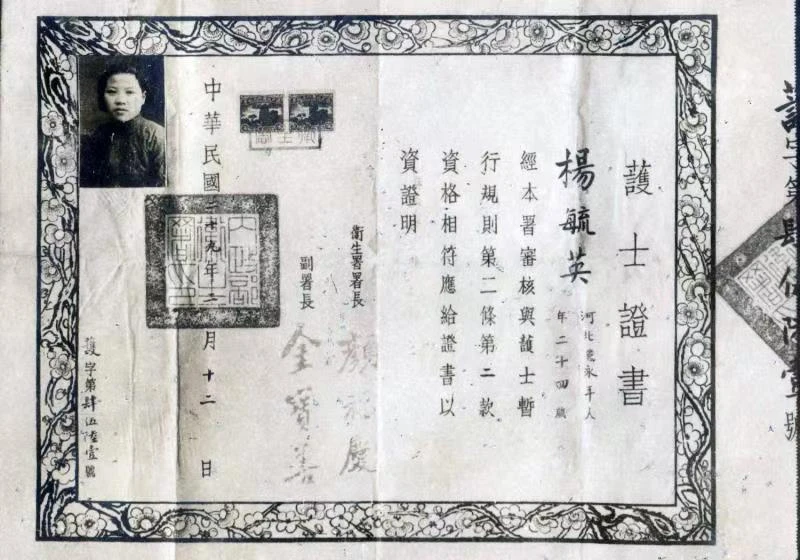 護士證書
楊毓英
河北省永年人
年二十四歲
經本署審核與護士暫
行規則第二條第二款
資格相符應給證書以
資證明
衛生署署長
顏福慶
副署長
金寶善
中華民國二十九年二月十二日
護字第肆伍陸壹號